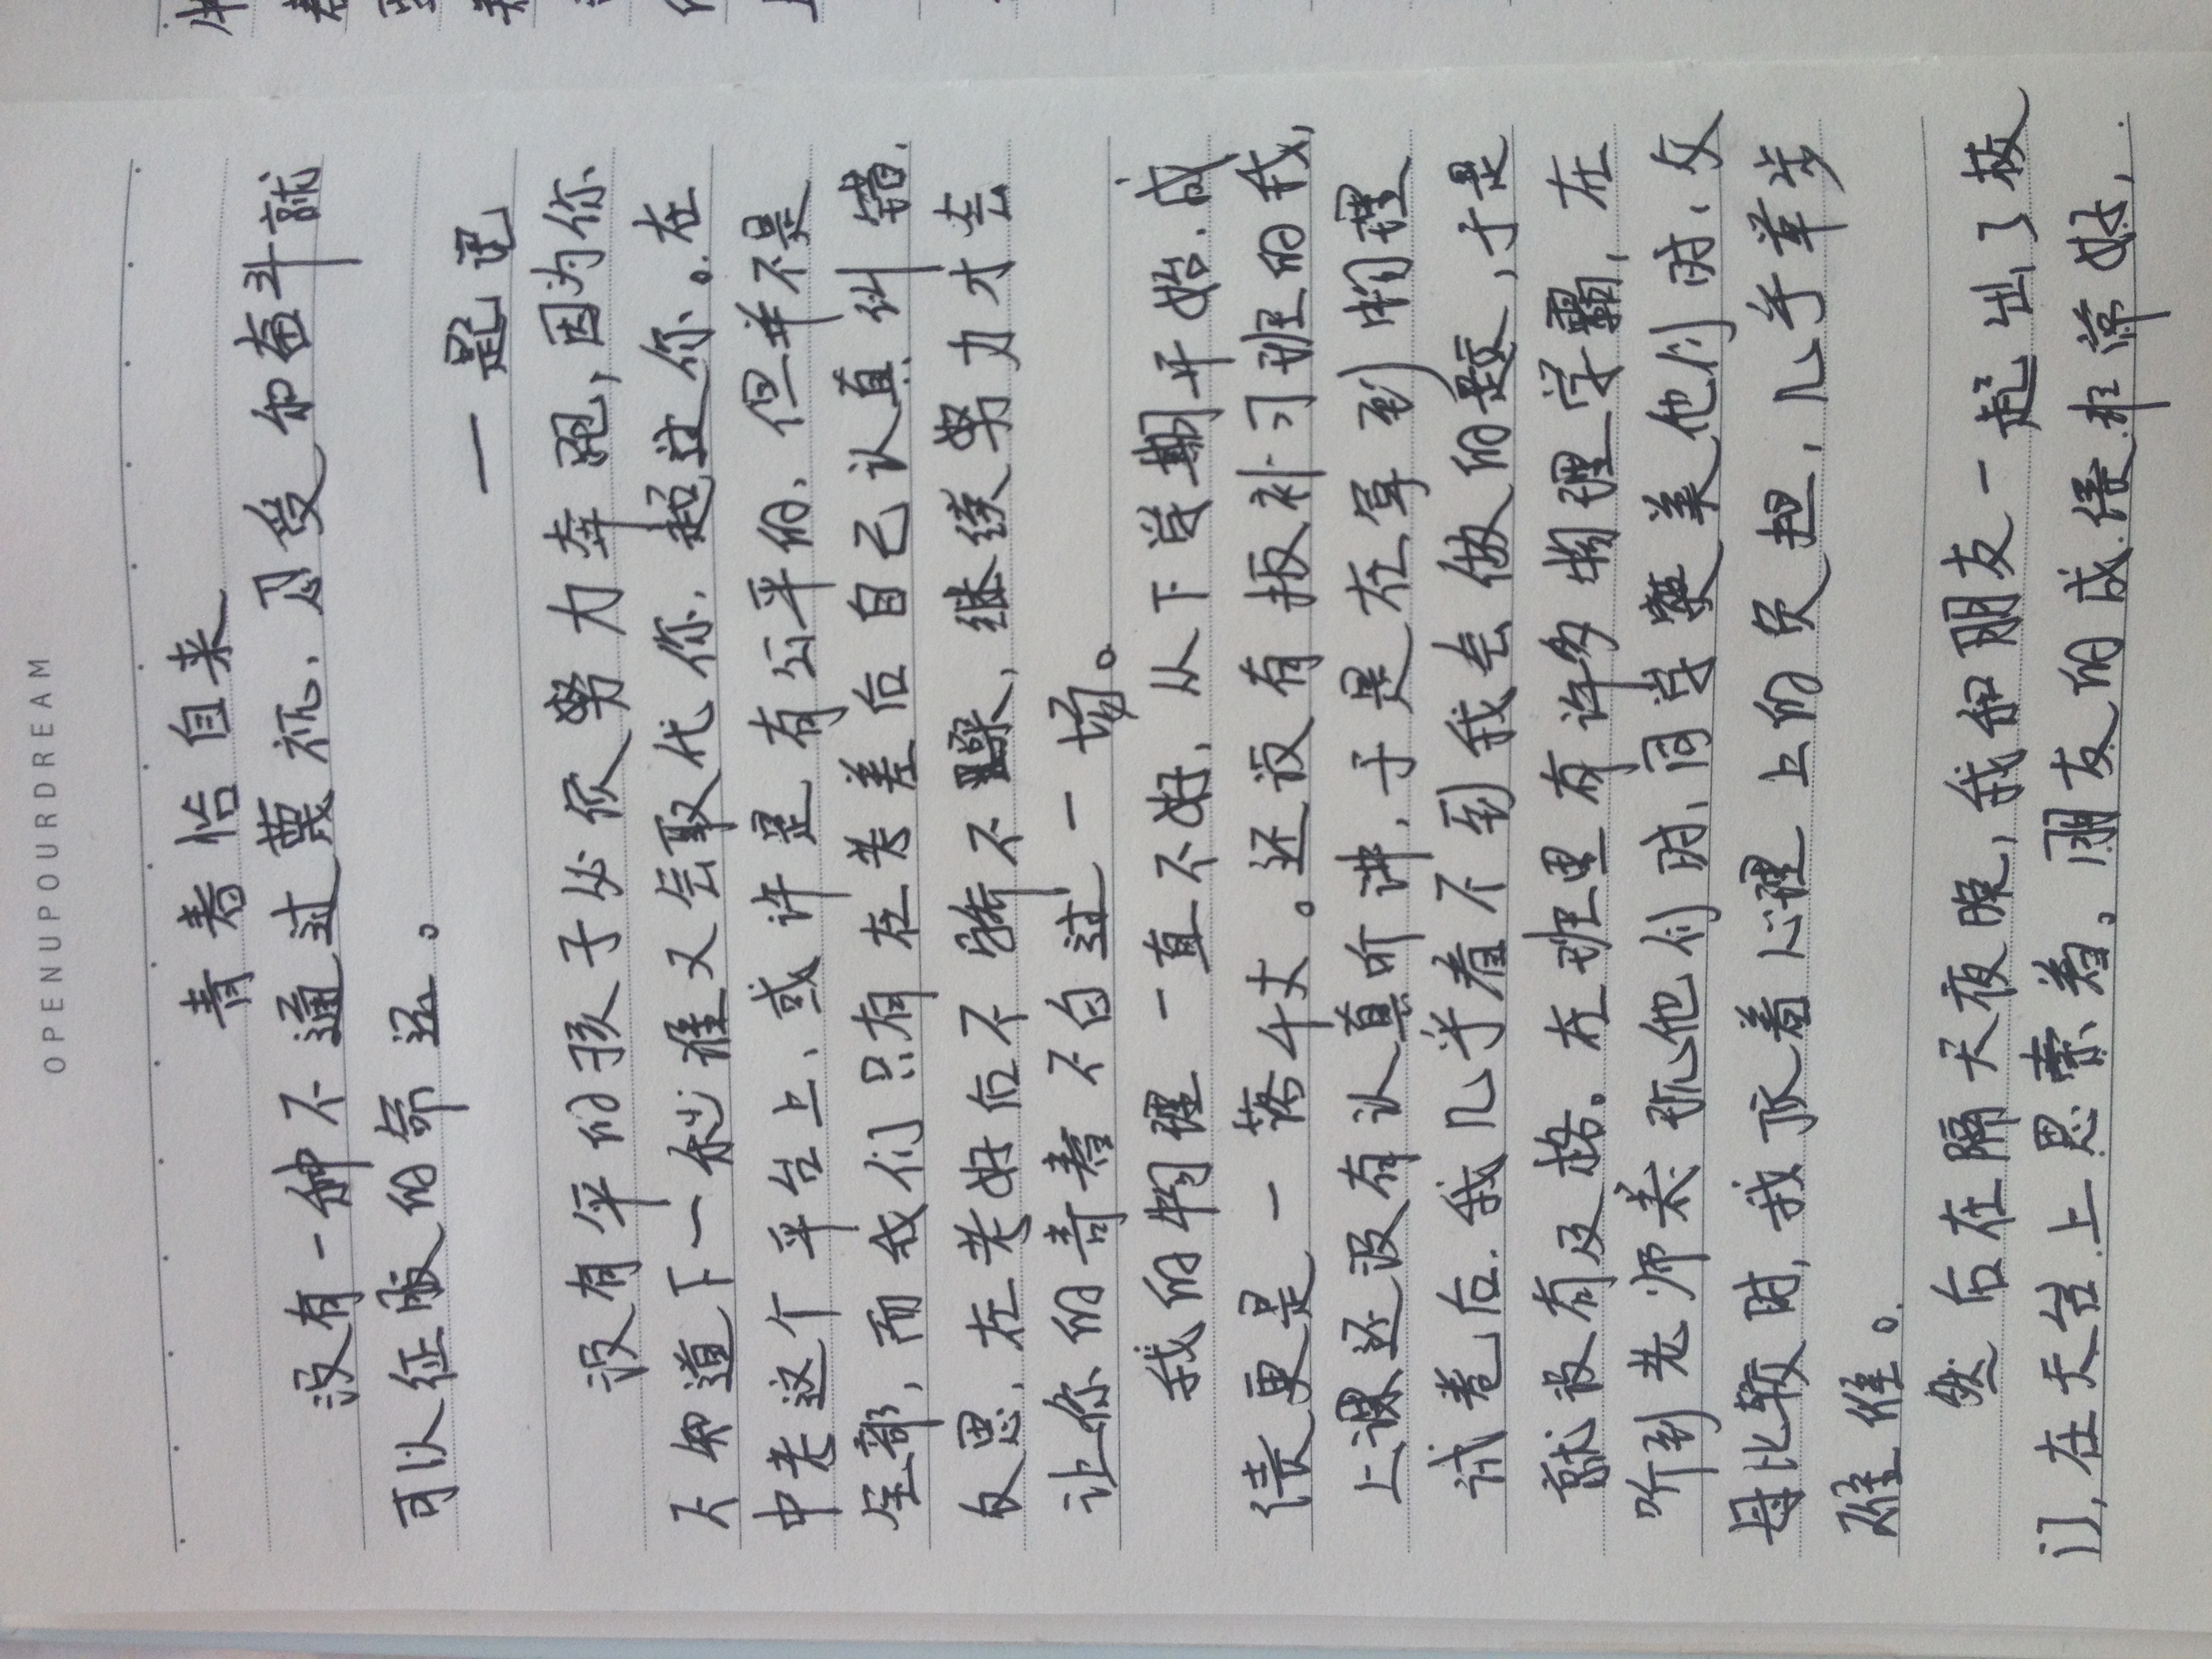 OPENUPOURDREAM
青春恰自来
没有一种不通过蔑视、忍受和奋斗就
可以征服的命运。
一 题记
没有伞的孩子必须努力奔跑,因为你
不知道下一秒谁又会取代你,超过你。在
中考这个平台上,或许是有公平的,但并不是
全部,而我们只有在考差后自己认真纠错,
反思,在考好后不骄不躁,继续努力才会
让你的青春不白过一场。
我的物理一直不好,从下学期开始,成
绩更是一落千丈。还没有报补习班的我,
上课还没有认真听讲,于是在拿到物理
试卷后,我几乎看不到我会做的题,于是
就没有及格。在班里有许多物理学霸,在
听到老师表扬他们时,同学羡美他们时,父
母比较时,我承着心理上的负担,几乎举步
难维。
然后在隔天夜晚,我和朋友一起出了校
门,在天台上思索着。朋友的成绩非常好,